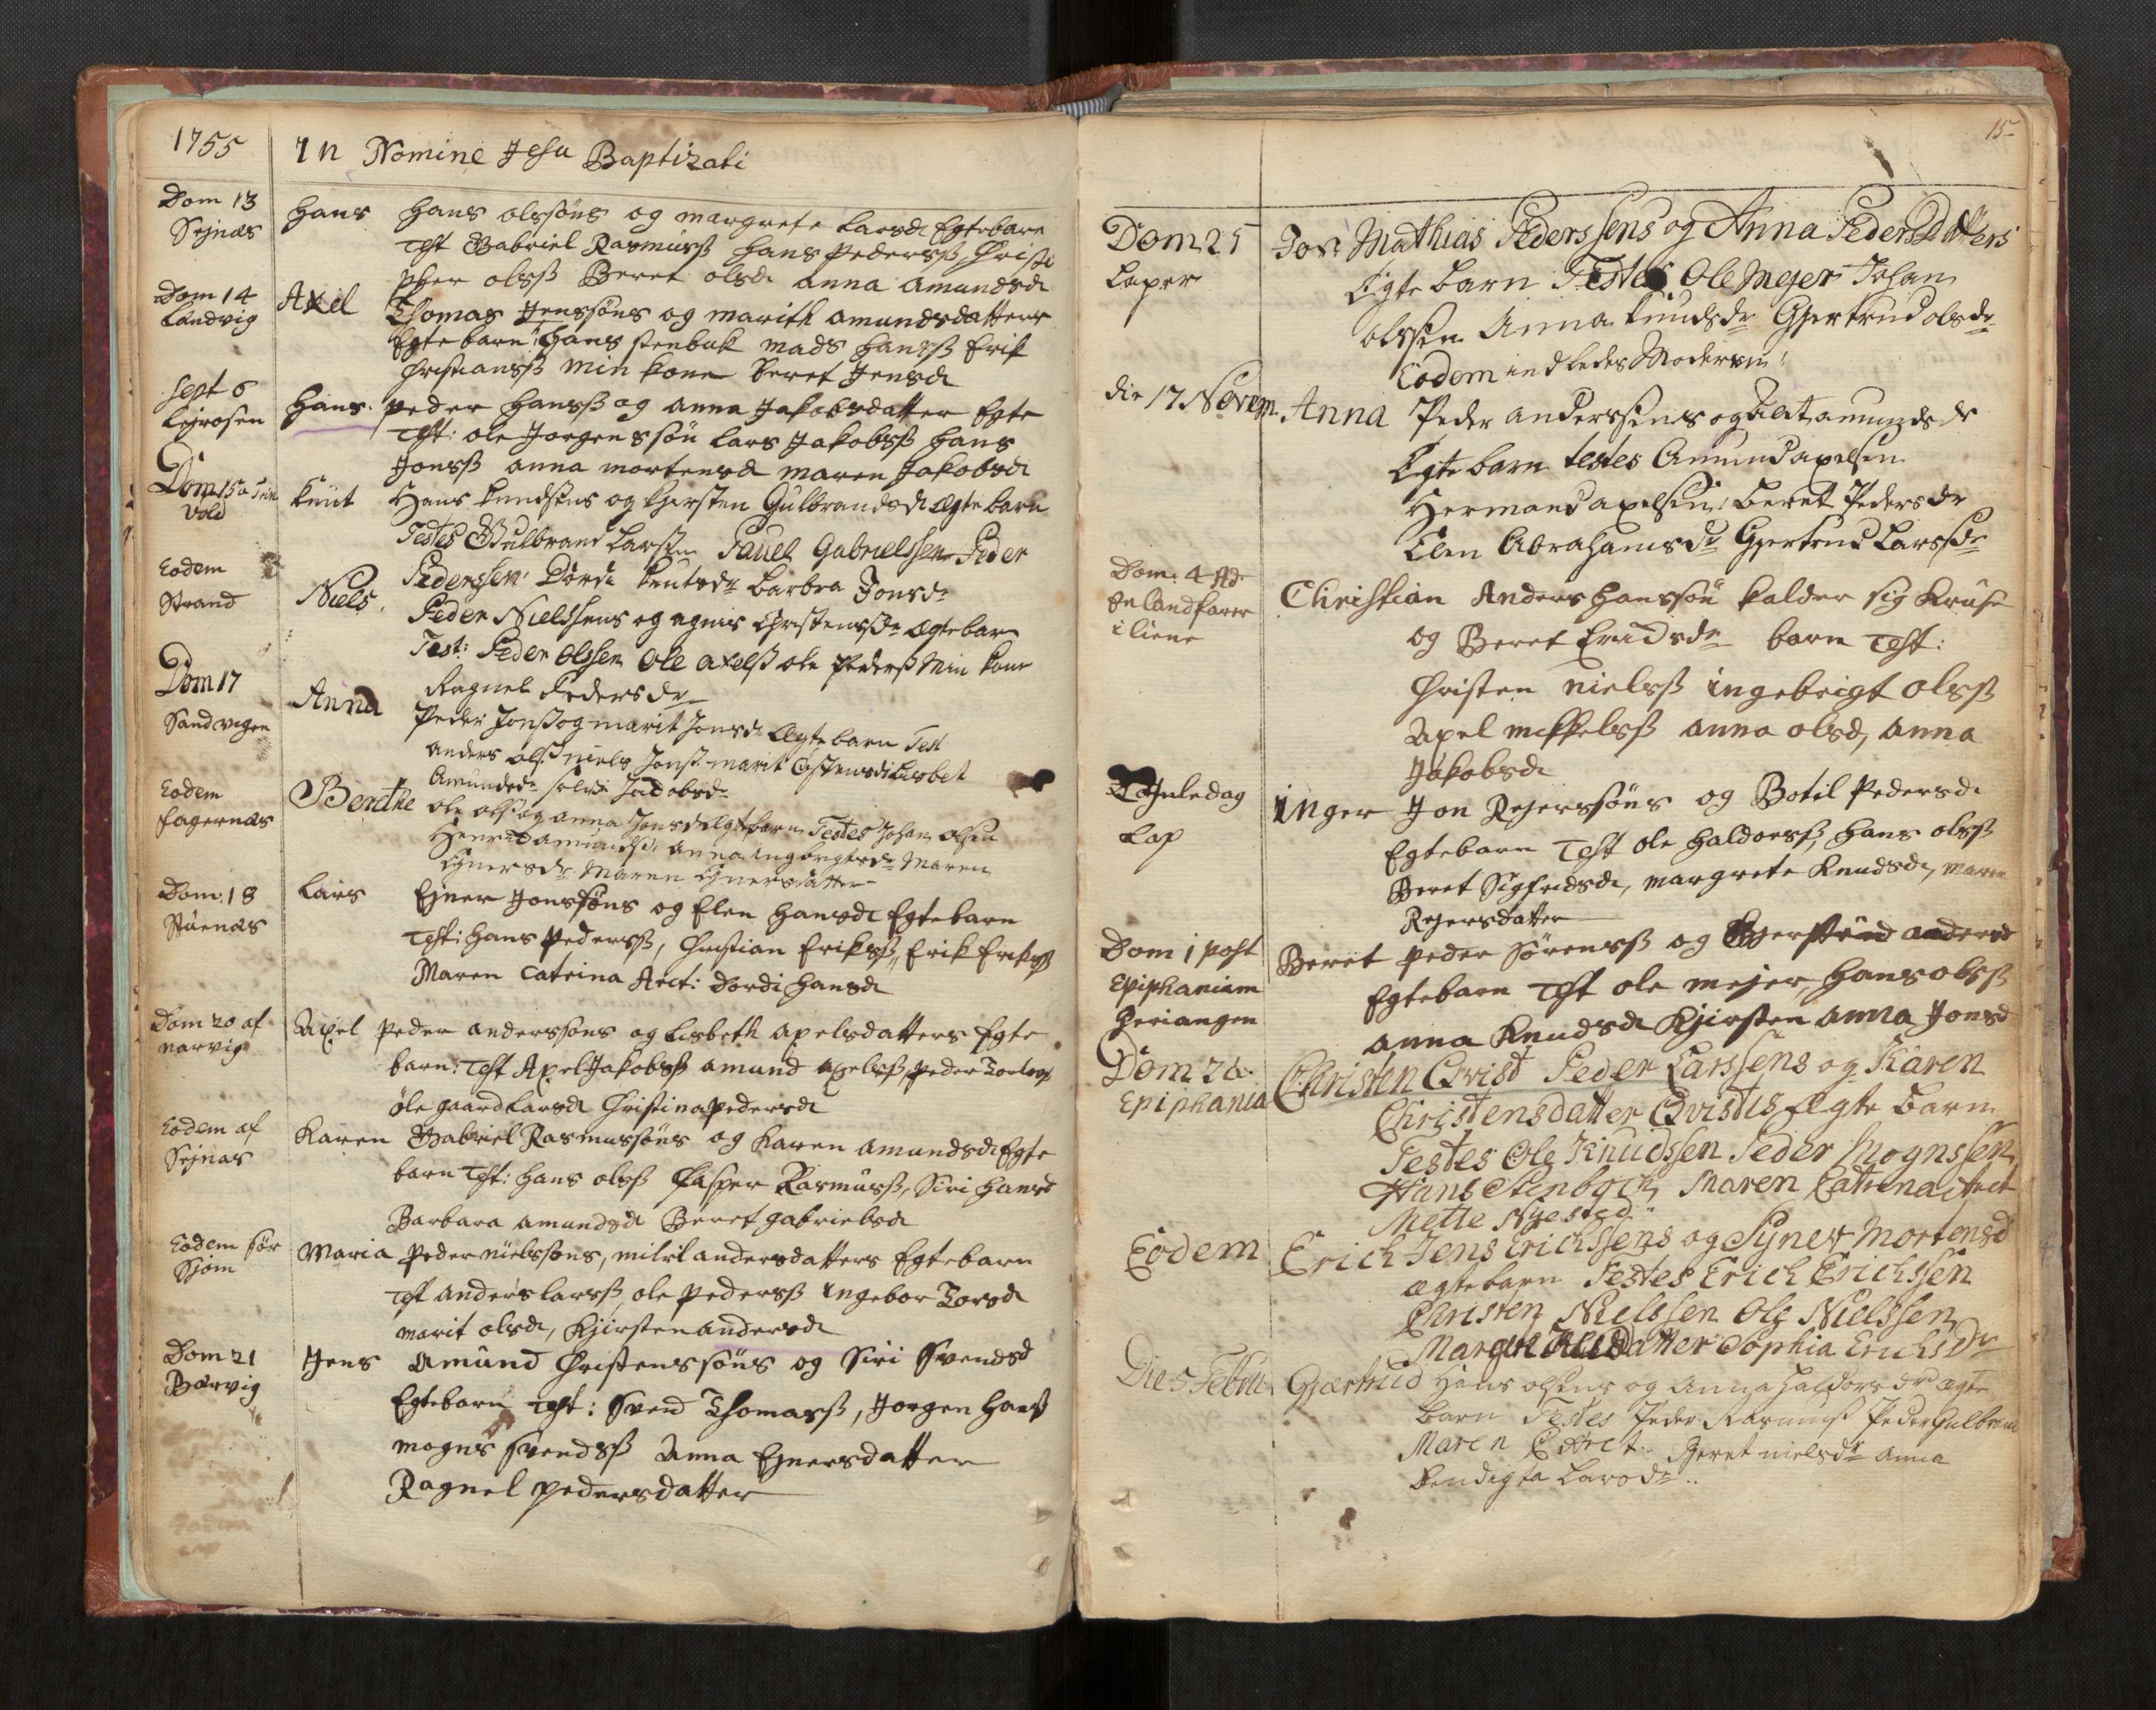 1755 In Nomine Jesu Baptizati
Dom 13 Hans Hans olssöns og margrete Larsd Egtebarn
Sejnæs Test Gabriel Rasmusß Hans Pedersß, Christo
pher olsß Beret olsd anna Amundsd
Dom 14 Axel Thomas Jenssöns og marith amundsdatters
Landvig Egtebarn: Hans stenbuk mads Hansß Erik
Christiansß min kone Beret Jensd
Sept 6 Hans Peder Hansß og Anna Jakobsdatter Egte
Test: ole Jorgenssön Lars Jakobsß Hans
Jonsß anna mortensd maren Jakobsd
Dom 15 a Trin Knut Hans knudsens og kjersten Gulbrandsd ægte barn
vold Testes Gulbrand Larssen Pauel Gabrielssen Peder
Pederssen Dordi knutsdr Barbra Jonsdr
Eodem Niels Peder Nielssens og agnis Christensdr ægtebarn
Strand Test: Peder Olssen Ole axelsß ole Pedersß Min kone
Ragnel Pedersdr
Dom 17 Anna Peder Jonsß og marit Jonsd Ægtebarn Test
Sandvigen anders olsß niels Jonsß marit Lisbet
Amundsdr Jacobsdr
Eodem Berethe ole olsß og anna Jonsd Ægtebarn Testes Johan olsen
Fagernæs anna ingbrigtsdr Maren
Ejnersdr Maren Ejnersdatter
Dom: 18 Lars Ejner Jonssöns og Elen Hansd Egtebarn
Stuenæs Test: Hans Pedersß, Christian Eriksß, Erik Eriksß
Maren Catrina Arct: Dordi Hansd
Dom 20 af Axel Peder anderssöns og Lisbeth axelsdatters Egte
narvig barn: Test Axel Jakobsß amund axelsß, Peder
ole gaard Larsd Christina Pedersd
Eodem af Karen Gabriel Rasmussöns og Karen amundsd Egte
Sejnæs barn Test: Hans olsß Casper Rasmusß, Siri Hansd
Barbara amundsd Beret gabrielsd
Eodem sör Maria Peder nielssöns, milril andersdatters Egtebarn
Sjom Test anders larsß, ole Pedersß Ingebor Torsd
marit olsd, Kjirsten andersd
Dom 21 Jens Amund Christenssöns og Siri Svendsd
Bærvig Egtebarn Test: Svend Thomasß, Jorgen Hansß
mogns svendsß Anna Ejnersdatter
Ragnel pedersdatter
15
Dom 25 Jon Mathias Pederssens og Anna PedersDatters
Laper Egte barn Testes Ole Mejer Johan
olssen Anna Knudsdr Gjertrud olsdr
Eodem indledes Moderen
die 17 Novem Anna Peder anderssens og amundsdr
Egte barn testes Amund axelsen
Hermand axelsen: Beret Pedersdr
Elen Abrahamsdr Gjertrud Larssdr
Dom: 4 Adv Christian Anders Hanssön kalder sig Kruse
En landfarer og Beret Ericksdr barn Test:
i liene Christen nielsß ingebrigt olsß
Axel mikkelsß anna olsd, anna
Jakobsd
Juledag Inger Jon Rejerssöns og Botil Pedersd
Lap Egtebarn Test ole Haldorsß, Hans olsß
Beret Sigfridsd, margrete Knudsd, maren
Rejersdatter
Dom 1 post Beret Peder Sörensß og Gjertrud andersd
Epiphaniam Egtebarn Test ole mejer, Hans olsß
Heriangen anna Knudsd Kjirsten anna Jonsd
Dom 2 a Christen Qvist Peder Larssens og Karen
Epiphania Christensdatter Qvistis ægte barn
Testes Ole Knudssen Peder Mognssen
Hans Stenboch Maren Catrina Arct
Mette Nyested
Eodem Erich Jens Erichssens og Synet Mortensd
ægtebarn Testes Erich Erichssen
Christen Nielssen Ole Nielssen
Margrt Datter Sophia Erichsdr
Die 5 Febru Gjærtrud Hans olsens og anna Haldorsdr ægte
barn Testes Peder Rasmusß Peder Gulbrand
Maren C Arct. Beret nielsdr anna
bendigta Larsdr